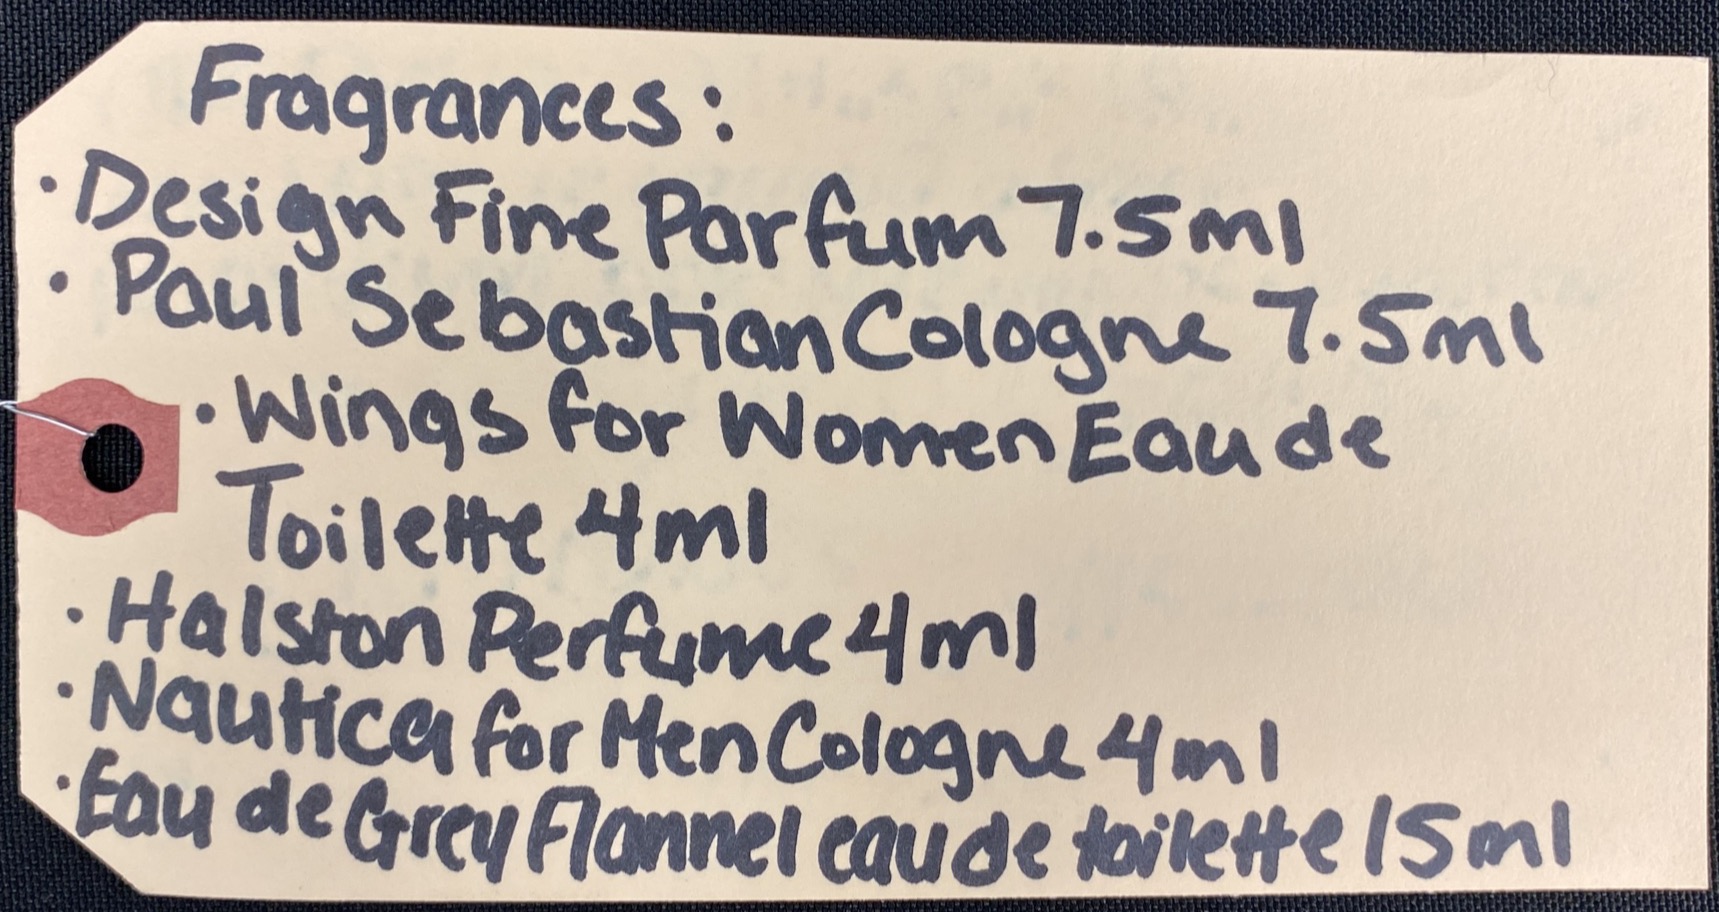 Fragrances:
· Design Fine Parfum 7.5ml
· Paul Sebastian Cologne 7.5ml
· Wings for Women Eau de
Toilette 4ml
· Halston Perfume 4ml
· Nautica for Men Cologne 4ml
· Eau de Grey Flannel eau de toilette 15ml